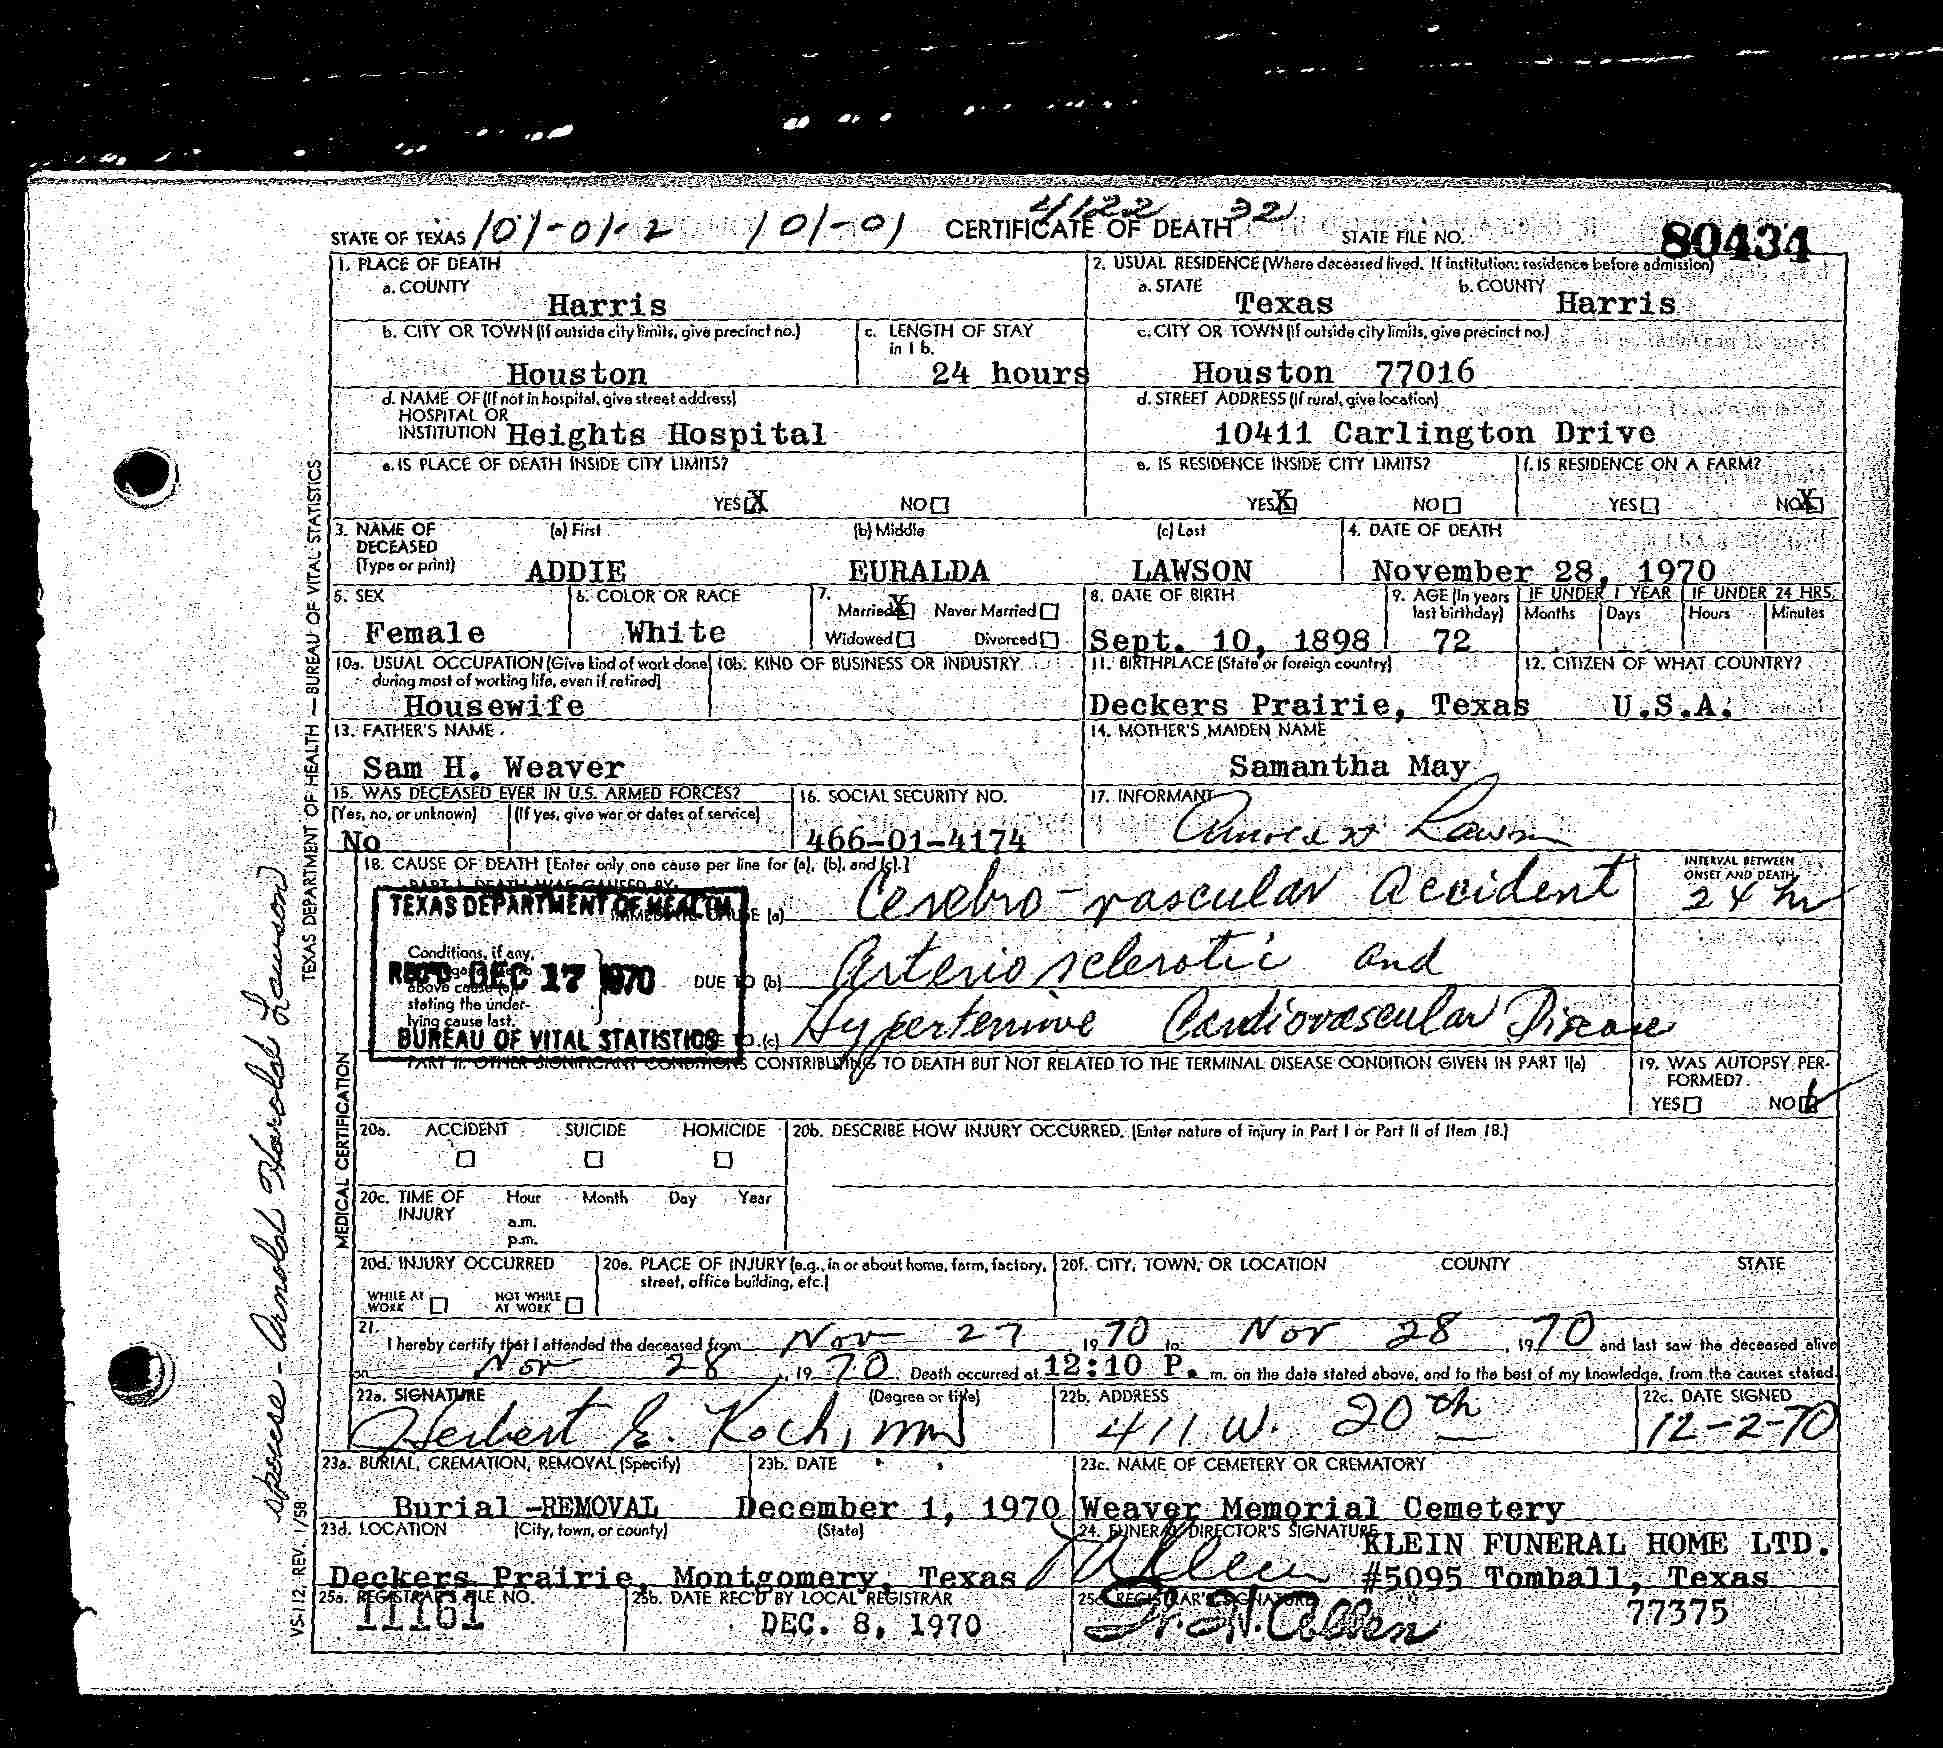 STATE OF TEXAS 101-01-2 101-01 CERTIFICATE OF DEATH 4122 32 STATE FILE NO. 80434
1. PLACE OF DEATH
a. COUNTY
Harris
2. USUAL RESIDENCE (Where deceased lived. If institution: residence before admission)
a. STATE b. COUNTY
Texas Harris
b. CITY OR TOWN (If outside city limits, give precinct no.)
Houston
c. LENGTH OF STAY
in 1 b.
24 hours
c. CITY OR TOWN (If outside city limits, give precinct no.)
Houston 77016
d. NAME OF (If not in hospital, give street address)
HOSPITAL OR
INSTITUTION Heights Hospital
d. STREET ADDRESS (If rural, give location)
10411 Carlington Drive
e. IS PLACE OF DEATH INSIDE CITY LIMITS?
YES X NO
e. IS RESIDENCE INSIDE CITY LIMITS?
YES X NO
f. IS RESIDENCE ON A FARM?
YES NO X
3. NAME OF
DECEASED
(Type or print)
(a) First (b) Middle (c) Last
ADDIE EURALDA LAWSON
4. DATE OF DEATH
November 28, 1970
5. SEX
Female
6. COLOR OR RACE
White
7.
Married X Never Married
Widowed Divorced
8. DATE OF BIRTH
Sept. 10, 1898
9. AGE (In years
last birthday)
72
IF UNDER 1 YEAR
Months Days
IF UNDER 24 HRS.
Hours Minutes
10a. USUAL OCCUPATION (Give kind of work done
during most of working life, even if retired)
Housewife
10b. KIND OF BUSINESS OR INDUSTRY
11. BIRTHPLACE (State or foreign country)
Deckers Prairie, Texas
12. CITIZEN OF WHAT COUNTRY?
U.S.A.
13. FATHER'S NAME
Sam H. Weaver
14. MOTHER'S MAIDEN NAME
Samantha May
15. WAS DECEASED EVER IN U.S. ARMED FORCES?
(Yes, no, or unknown) (If yes, give war or dates of service)
No
16. SOCIAL SECURITY NO.
466-01-4174
17. INFORMANT
Lawson
18. CAUSE OF DEATH [Enter only one cause per line for (a), (b), and (c).]
PART I. DEATH WAS CAUSED BY:
IMMEDIATE CAUSE (a) Cerebro-vascular accident
INTERVAL BETWEEN
ONSET AND DEATH
24 hr
TEXAS DEPARTMENT OF HEALTH
REC'D DEC 17 1970
BUREAU OF VITAL STATISTICS
Conditions, if any,
above cause (a)
stating the under-
lying cause last.
DUE TO (b) Arteriosclerotic and
DUE TO (c) Hypertensive Cardiovascular Disease
PART II. OTHER SIGNIFICANT CONDITIONS CONTRIBUTING TO DEATH BUT NOT RELATED TO THE TERMINAL DISEASE CONDITION GIVEN IN PART I(a)
19. WAS AUTOPSY PER-
FORMED?
YES NO
20a. ACCIDENT SUICIDE HOMICIDE
20b. DESCRIBE HOW INJURY OCCURRED. (Enter nature of injury in Part I or Part II of Item 18.)
20c. TIME OF
INJURY
Hour Month Day Year
a.m.
p.m.
20d. INJURY OCCURRED
WHILE AT
WORK
NOT WHILE
AT WORK
20e. PLACE OF INJURY (e.g., in or about home, farm, factory,
street, office building, etc.)
20f. CITY, TOWN, OR LOCATION COUNTY STATE
21.
I hereby certify that I attended the deceased from Nov 27 1970 to Nov 28, 1970 and last saw the deceased alive
on Nov 28, 1970. Death occurred at 12:10 P. m. on the date stated above, and to the best of my knowledge, from the causes stated.
22a. SIGNATURE (Degree or title)
Herbert E. Koch, MD
22b. ADDRESS
411 W. 20th
22c. DATE SIGNED
12-2-70
23a. BURIAL, CREMATION, REMOVAL (Specify)
Burial -REMOVAL
23b. DATE
December 1, 1970
23c. NAME OF CEMETERY OR CREMATORY
Weaver Memorial Cemetery
23d. LOCATION (City, town, or county) (State)
Deckers Prairie, Montgomery, Texas
24. FUNERAL DIRECTOR'S SIGNATURE
Klein
KLEIN FUNERAL HOME LTD.
#5095 Tomball, Texas
77375
25a. REGISTRAR'S FILE NO.
11161
25b. DATE REC'D BY LOCAL REGISTRAR
DEC. 8, 1970
25c. REGISTRAR'S SIGNATURE
TEXAS DEPARTMENT OF HEALTH — BUREAU OF VITAL STATISTICS
MEDICAL CERTIFICATION
VS-112, REV. 1/58
Spouse - Arnold Harold Lawson